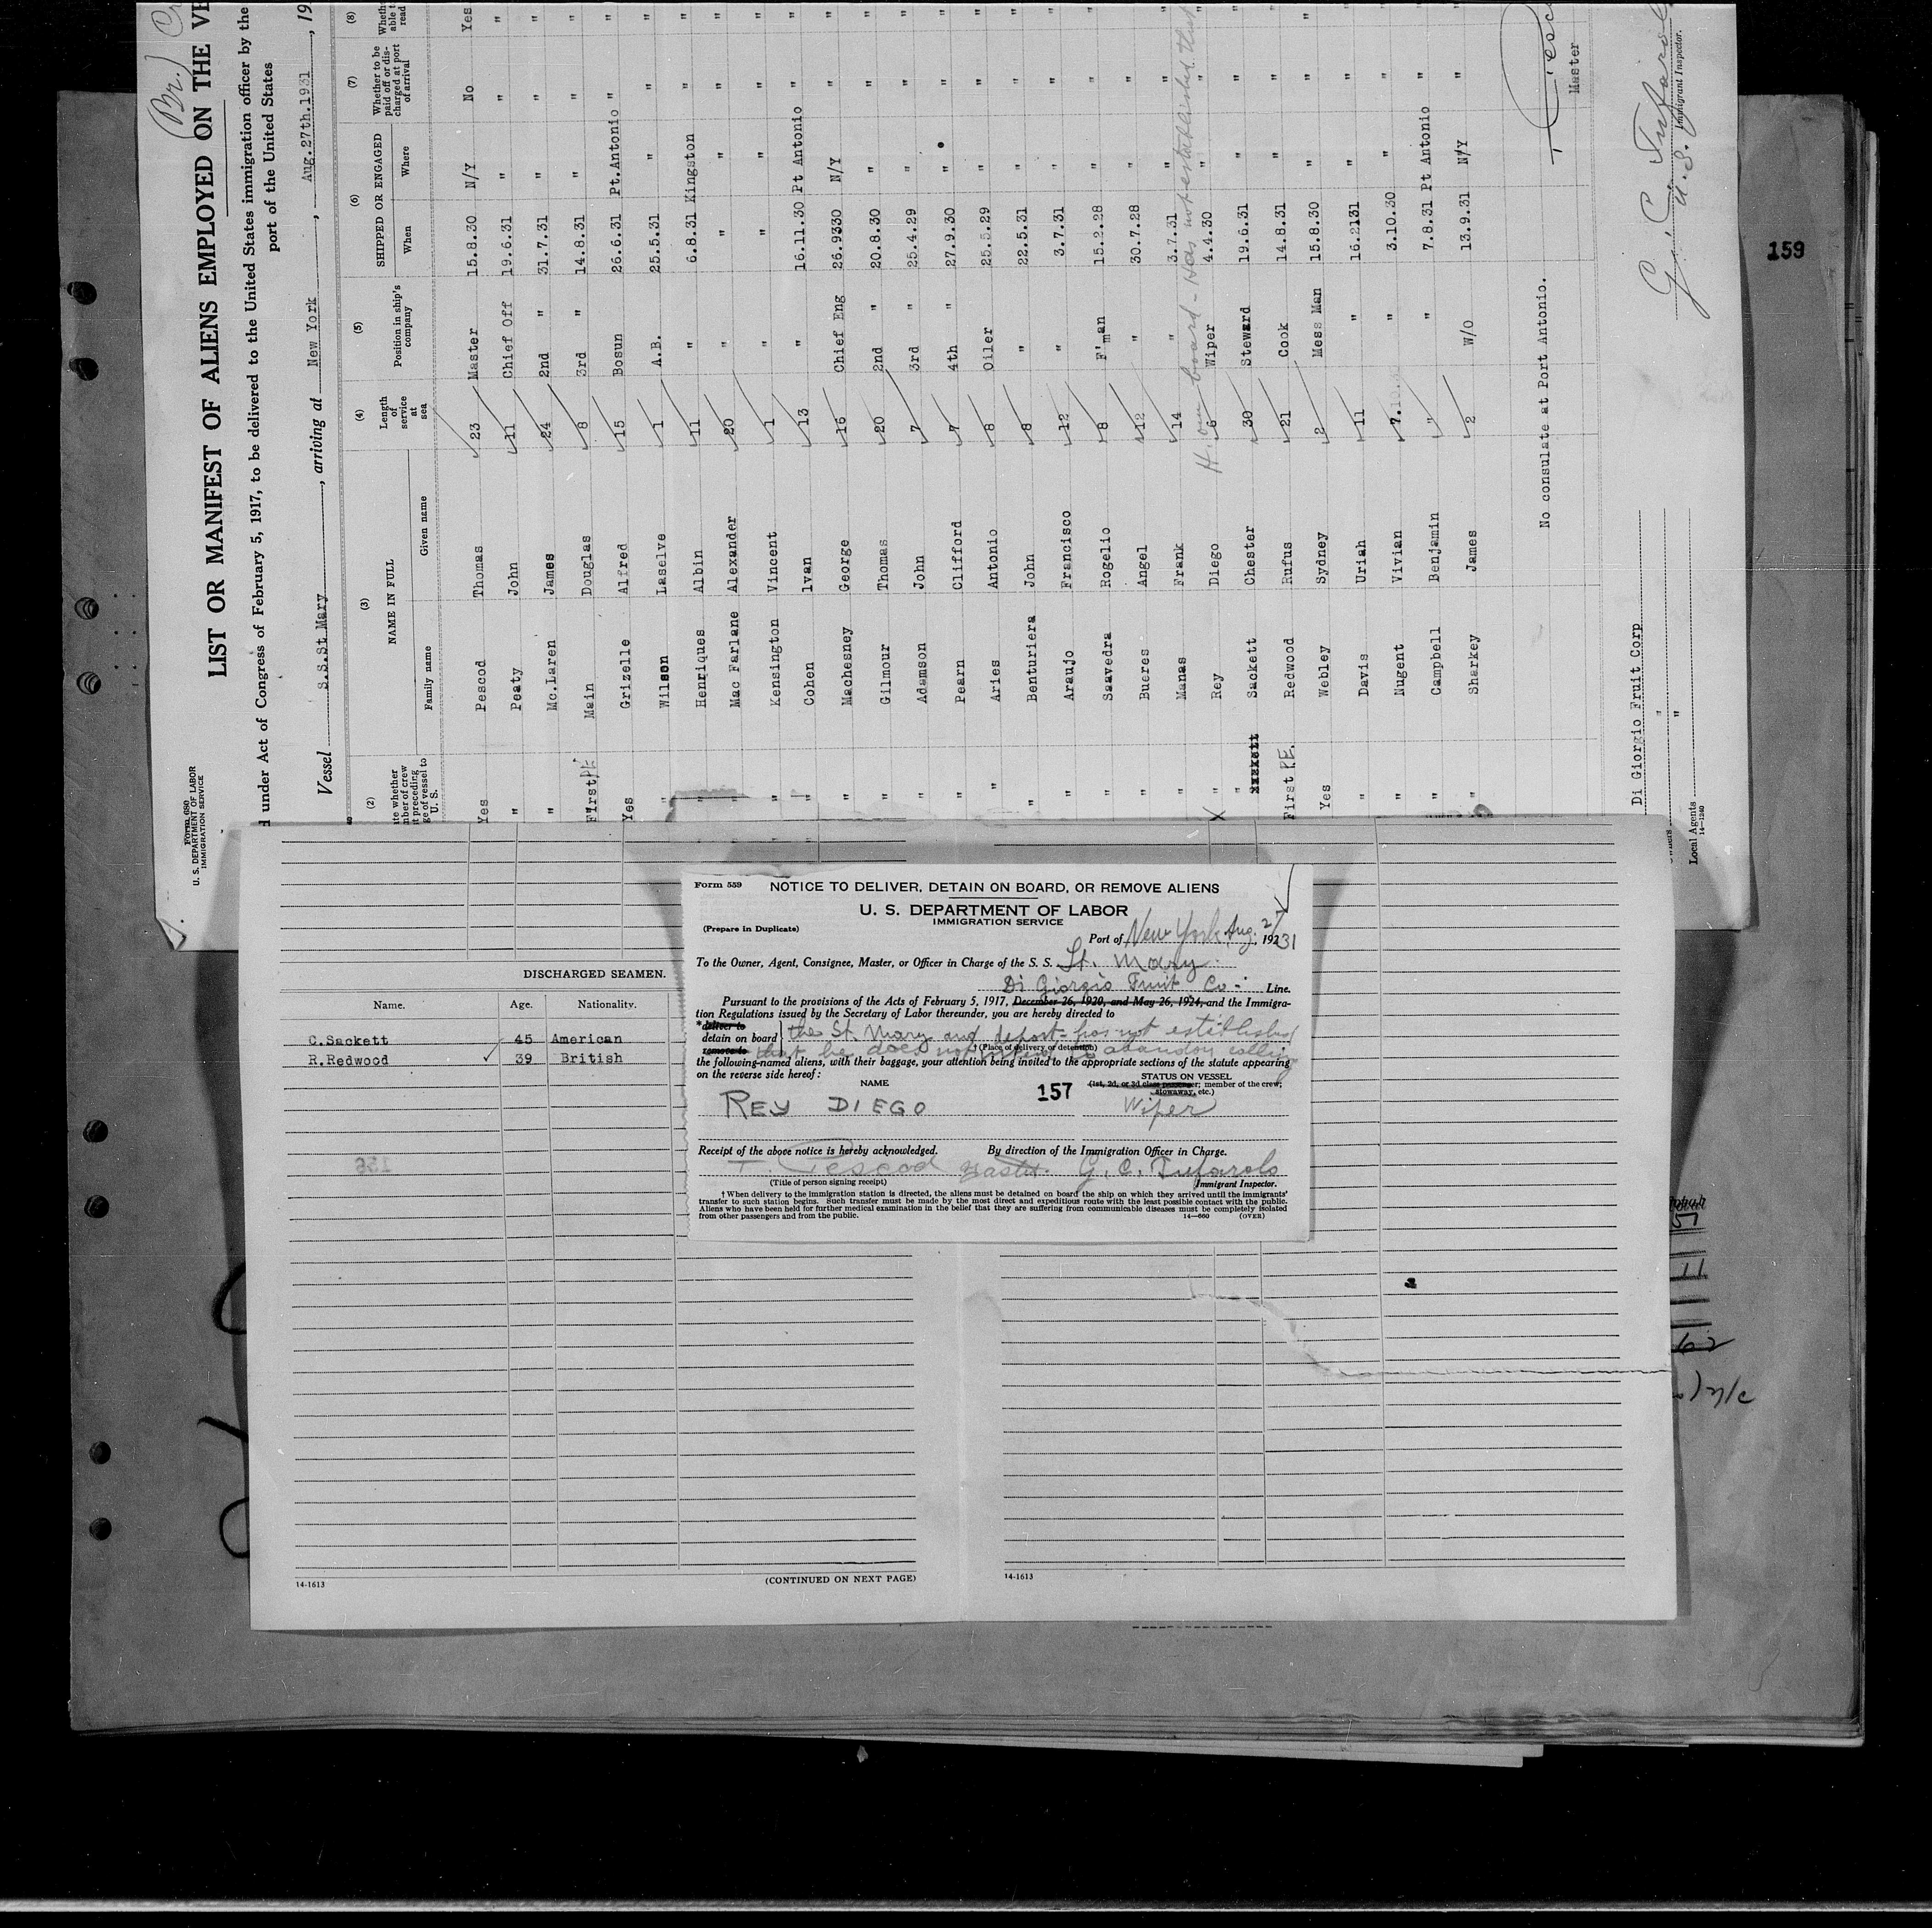 (Br.)
Form 680
U. S. DEPARTMENT OF LABOR
IMMIGRATION SERVICE
LIST OR MANIFEST OF ALIENS EMPLOYED ON THE VE
d under Act of Congress of February 5, 1917, to be delivered to the United States immigration officer by the
port of the United States
Vessel S.S.St Mary, arriving at New York, Aug.27th.1931, 19
(2) (3) (4) (5) (6) (7) (8)
NAME IN FULL
Family name Given name
Length of service at sea
Position in ship's company
SHIPPED OR ENGAGED
When Where
Whether to be paid off or discharged at port of arrival
Yes Pescod Thomas 23 Master 15.8.30 N/Y No Yes
" Peaty John 11 Chief Off 19.6.31 " " "
" Mc.Laren James 24 2nd " 31.7.31 " " "
First P.E. Main Douglas 8 3rd " 14.8.31 " " "
Yes Grizelle Alfred 15 Bosun 26.6.31 Pt.Antonio " "
" Wilson Laselve 1 A.B. 25.5.31 " " "
" Henriques Albin 11 " 6.8.31 Kingston " "
" Mac Farlane Alexander 20 " " " " "
" Kensington Vincent 1 " " " " "
" Cohen Ivan 13 " 16.11.30 Pt Antonio " "
" Machesney George 16 Chief Eng 26.9330 N/Y " "
" Gilmour Thomas 20 2nd " 20.8.30 " " "
" Adamson John 7 3rd " 25.4.29 " " "
" Pearn Clifford 7 4th " 27.9.30 " " "
" Aries Antonio 8 Oiler 25.5.29 " " "
" Benturiera John 8 " 22.5.31 " " "
" Araujo Francisco 12 " 3.7.31 " " "
" Saavedra Rogelio 8 F'man 15.2.28 " " "
" Bueres Angel 12 " 30.7.28 " " "
" Manas Frank 14 " 3.7.31 " " "
board - Has not established that
X " Rey Diego 6 Wiper 4.4.30 " " "
" Sackett Chester 30 Steward 19.6.31 " " "
First P.E. Redwood Rufus 21 Cook 14.8.31 " " "
Yes Webley Sydney 2 Mess Man 15.8.30 " " "
" Davis Uriah 11 " 16.2131 " "
" Nugent Vivian 7. " 3.10.30 " "
" Campbell Benjamin " " 7.8.31 Pt Antonio "
" Sharkey James 2 W/O 13.9.31 N/Y "
No consulate at Port Antonio.
Master
Di Giorgio Fruit Corp
Local Agents
14-1240
G. C. Tufarolo
U. S. Immigrant Inspector.
159
DISCHARGED SEAMEN.
Name. Age. Nationality.
C.Sackett 45 American
R.Redwood 39 British
Form 559
NOTICE TO DELIVER, DETAIN ON BOARD, OR REMOVE ALIENS
U. S. DEPARTMENT OF LABOR
IMMIGRATION SERVICE
(Prepare in Duplicate)
Port of New York, Aug. 27, 19231
To the Owner, Agent, Consignee, Master, or Officer in Charge of the S. S. St. Mary
Di Giorgio Fruit Co. Line.
Pursuant to the provisions of the Acts of February 5, 1917, December 26, 1920, and May 26, 1924, and the Immigra-
tion Regulations issued by the Secretary of Labor thereunder, you are hereby directed to
*deliver to
detain on board
remove to
the St. Mary and deport - has not established
†(Place of delivery or detention)
that he does not intend to abandon calling
the following-named aliens, with their baggage, your attention being invited to the appropriate sections of the statute appearing
on the reverse side hereof:
NAME
STATUS ON VESSEL
(1st, 2d, or 3d class passenger; member of the crew;
stowaway, etc.)
157
REY DIEGO Wiper
Receipt of the above notice is hereby acknowledged. By direction of the Immigration Officer in Charge.
T Pescod Master G. C. Tufarolo
(Title of person signing receipt) Immigrant Inspector.
† When delivery to the immigration station is directed, the aliens must be detained on board the ship on which they arrived until the immigrants'
transfer to such station begins. Such transfer must be made by the most direct and expeditious route with the least possible contact with the public.
Aliens who have been held for further medical examination in the belief that they are suffering from communicable diseases must be completely isolated
from other passengers and from the public.
14—660 (OVER)
14-1613 (CONTINUED ON NEXT PAGE) 14-1613